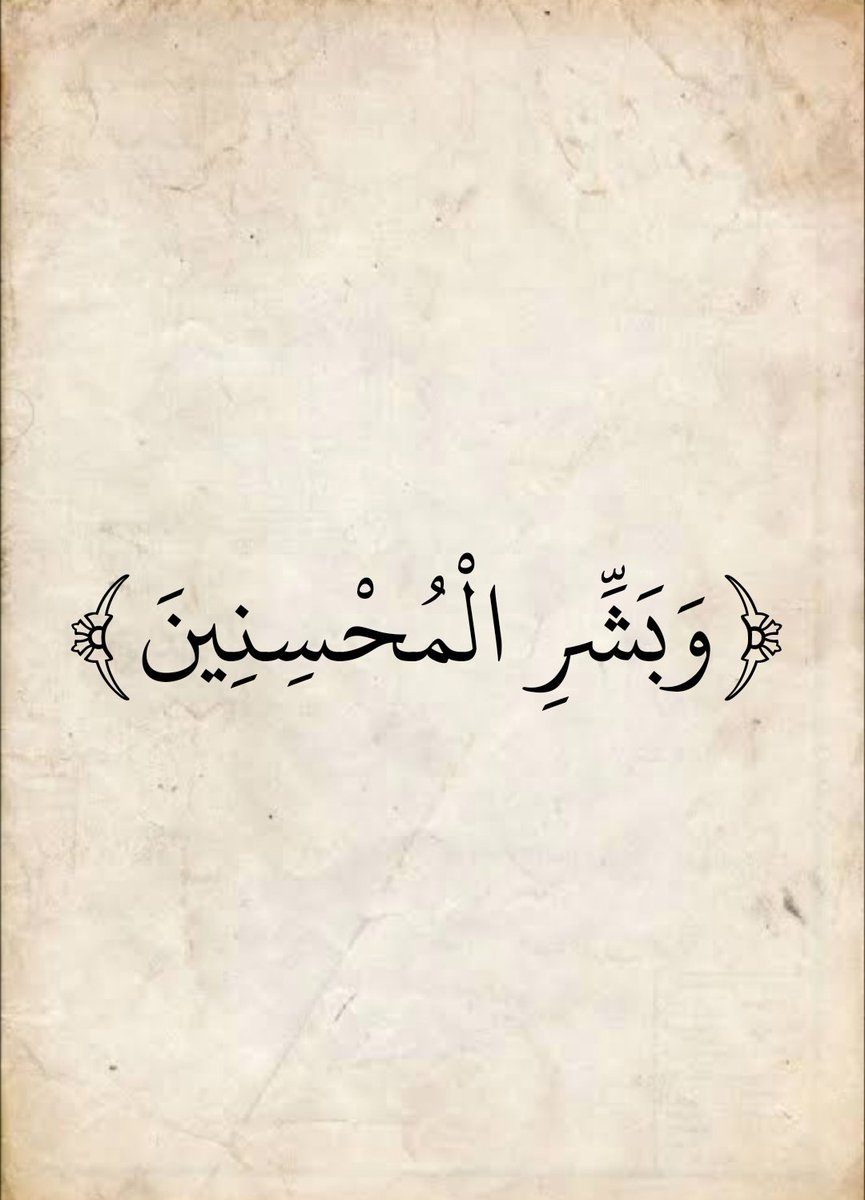 ﴿ وَبَشِّرِ الْمُحْسِنِينَ ﴾